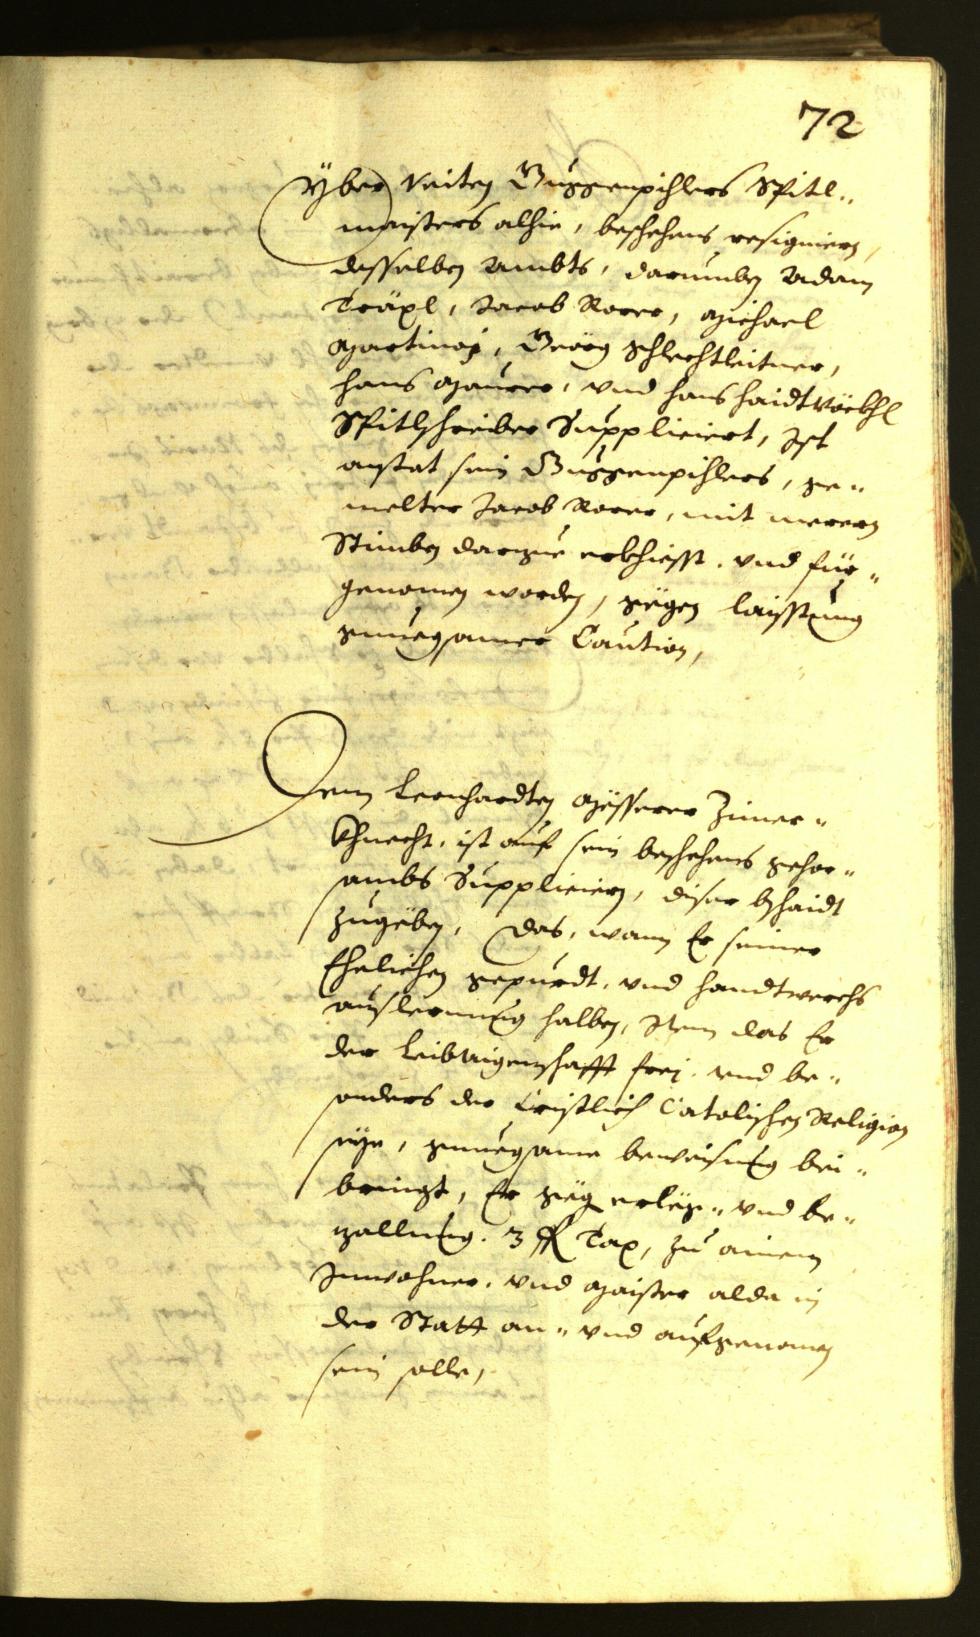 72
Yber Veiten Guggenpihlers Spitl„
maisters alhie, beschehens resigniern,
desselben Ambts, darumben Adam
Träxl, Jacob Rorer, Michael
Martinoi, Georg Schlechtleitner,
Hans Maurer, und Hans Haidt
Spitlschreiber Supplicirt, Ist
anstat sein Guggenpihlers, ge„
melter Jacob Rorer, mit merern
Stimben darzue erkhiesst, und für„
genomen worden, gegen laisstung
genuegsamer Caution,
Dem Leonhardten Mësserer Zimer„
Khnecht, ist auf sein beschehens gehor„
sambs Suppliciern, diser bschaidt
zugëben, Das, wann Er seiner
Ehelichen gepurdt, und handtwerchs
auslernung halben, Item das Er
der Leibaigenschafft frej, und be„
sonders der Cristlich Catolischen Religion
seye, genuegsame beweisung bei„
bringt, Er geg erleg„ und be„
zallung 3 fl Tax, zu ainem
Inwohner, und Maister alda in
der Statt an„ und aufgenomen
sein solle,